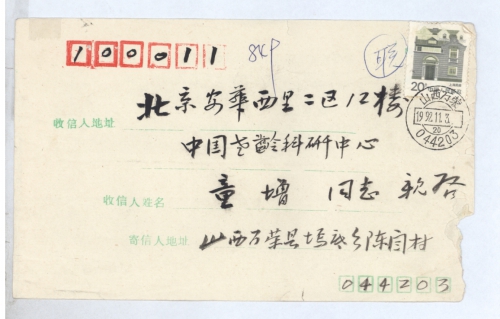 100011
20分
山西万荣
1992.11.3
20
044203
北京安华西里二区12楼
收信人地址
中国老龄科研中心
童增 同志 亲启
收信人姓名
寄信人地址 山西万荣县埝底乡陈间村
044203